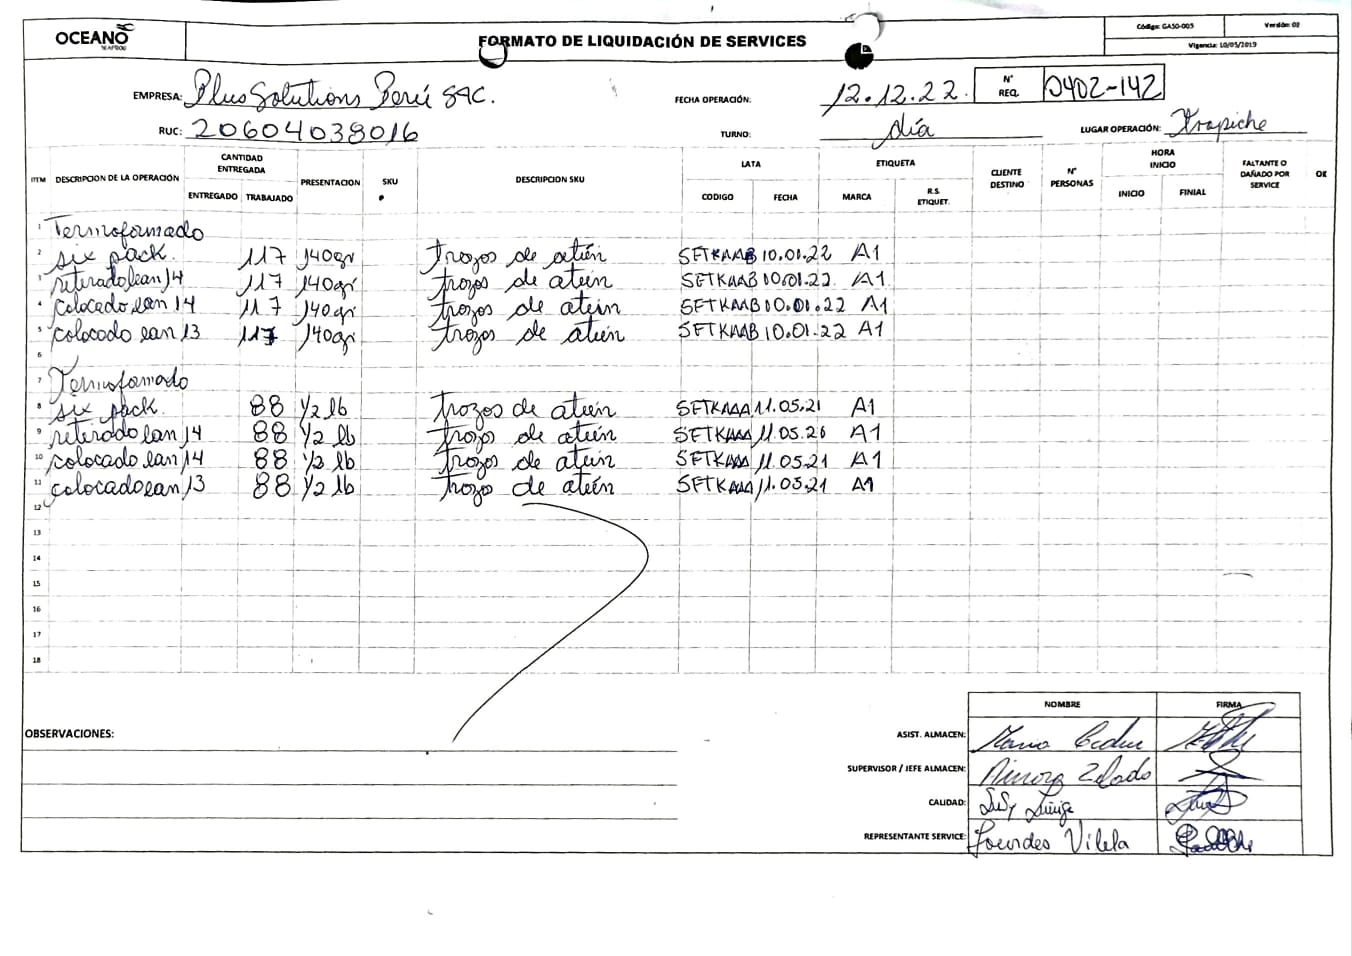 OCEANO
SEAFOOD
FORMATO DE LIQUIDACIÓN DE SERVICES
Código: GASO-005
Versión: 02
Vigencia: 10/05/2019
EMPRESA: Plus Solutions Perú SAC.
FECHA OPERACIÓN: 12.12.22.
N° REQ. 0402-142
RUC: 20604038016
TURNO: día
LUGAR OPERACIÓN: Trapiche
ITEM DESCRIPCION DE LA OPERACIÓN CANTIDAD ENTREGADA PRESENTACION SKU DESCRIPCION SKU LATA ETIQUETA CLIENTE DESTINO N° PERSONAS HORA INICIO FALTANTE O DAÑADO POR SERVICE OK
ENTREGADO TRABAJADO CODIGO FECHA MARCA R.S. ETIQUET. INICIO FINIAL
1 Termoformado
2 six pack. 117 140gr trozos de atún SETKAAB 10.01.22 A1
3 retirado ean 14 117 140gr trozos de atún SETKAAB 10.01.22. A1
4 colocado ean 14 117 140gr trozos de atún SETKAAB 10.01.22 A1
5 colocado ean 13 117 140gr trozos de atún SETKAAB 10.01.22 A1
6
7 Termoformado
8 six pack. 88 1/2 lb trozos de atún SETKAAA 11.05.21 A1
9 retirado ean 14 88 1/2 lb trozos de atún SETKAAA 11.05.26 A1
10 colocado ean 14 88 1/2 lb trozos de atún SETKAAA 11.05.21 A1
11 colocado ean 13 88 1/2 lb trozos de atún SETKAAA 11.05.21 A1
12
13
14
15
16
17
18
NOMBRE FIRMA
OBSERVACIONES:
ASIST. ALMACEN:
SUPERVISOR / JEFE ALMACEN:
CALIDAD:
REPRESENTANTE SERVICE: Lourdes Vilela